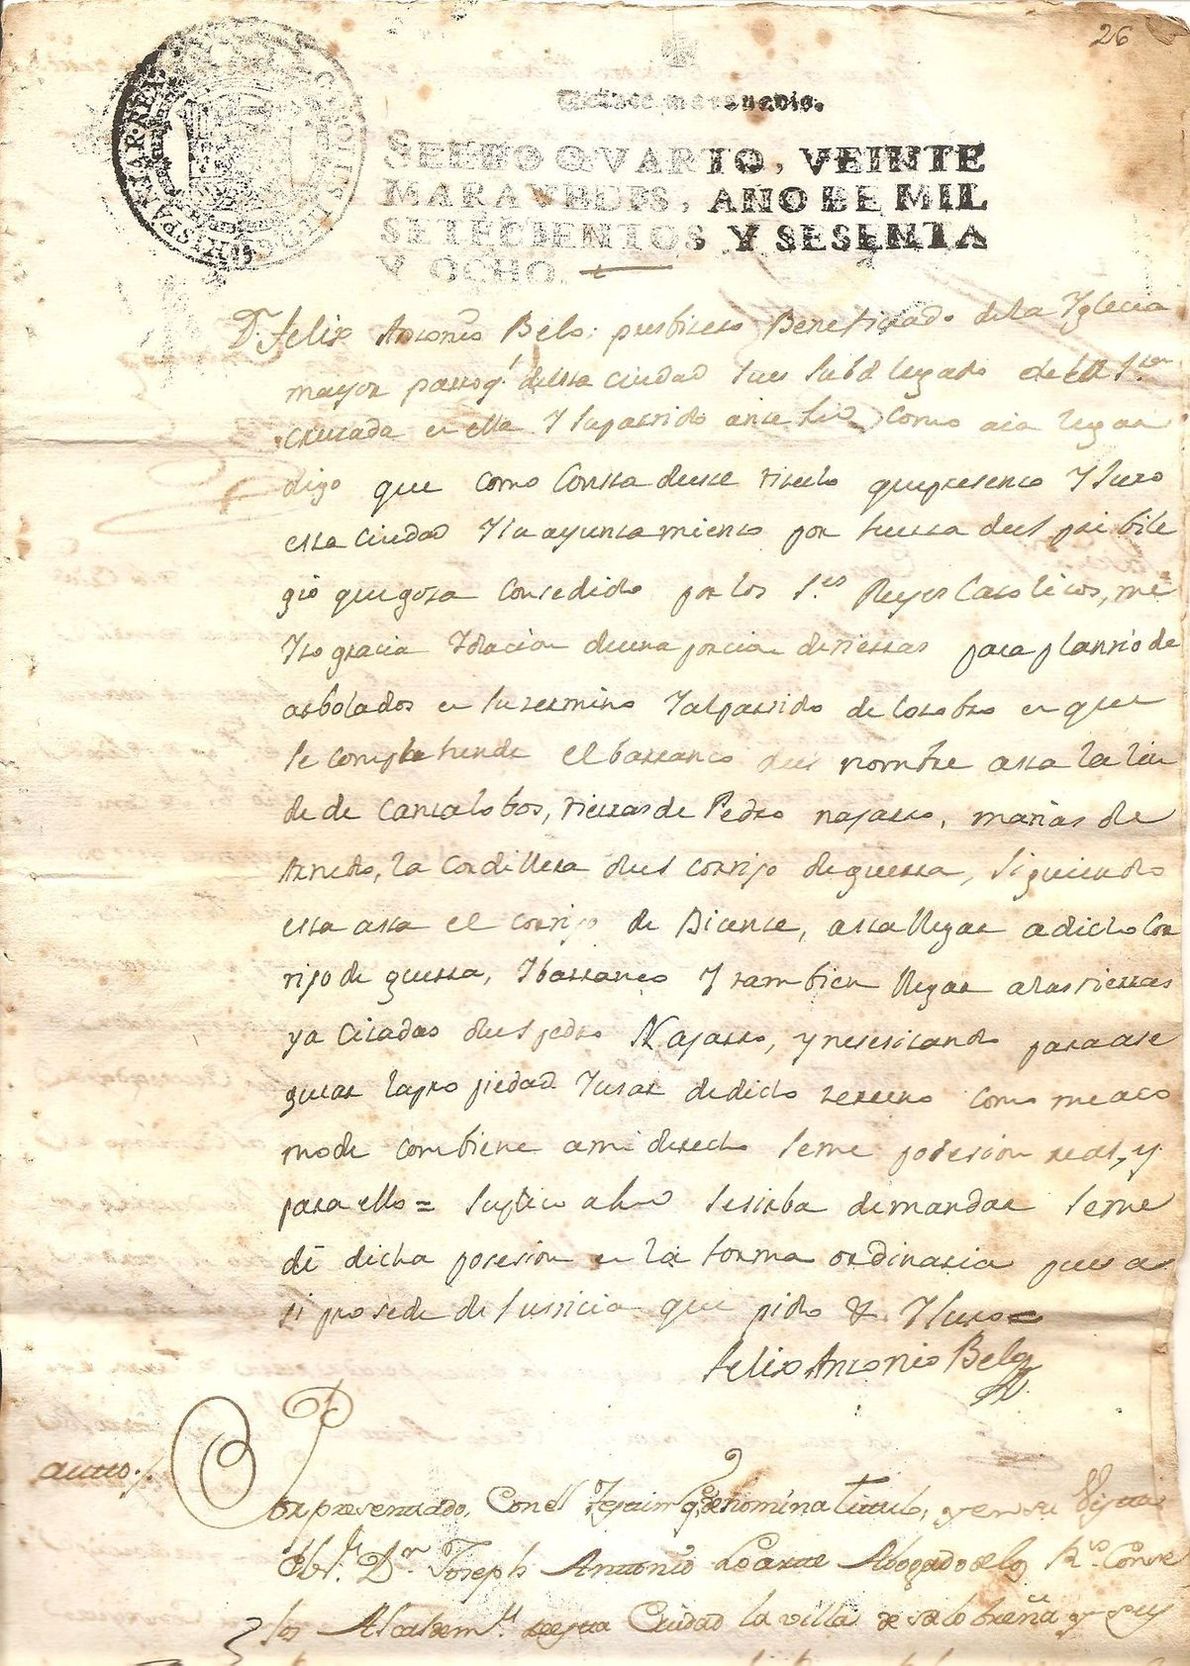 26
Veinte maravedis.
SELLO QVARTO, VEINTE
MARAVEDIS, AÑO DE MIL
SETECIENTOS Y SESENTA
Y OCHO.
HISPANIAR REX
Dn. Felix Antonio Belo: presbitero Beneficiado dela Yglecia
mayor parroql. desta ciudad Jues Subdelegado de la Sta.
crusada en ella Y supartido ante Vmd Como aia lugar
digo que como Consta deeste titulo quepresento Y Juro
esta Ciudad Y su ayuntamiento por fuersa del pribile
gio quegosa Consedido por los Ses. Reyes Catolicos, me
Yso gracia Y dacion deuna porcion detierras para plantio de
arbolados en su termino Y alpartido de lo en que
se comprehende el barranco deel nombre asta la lin
de de Cantalobos, tierras de Pedro najarro, marias de
Arnedo, la Cordillera del cortijo deguerra, siguiendo
esta asta el cortijo de Bicente, asta llegar a dicho Cor
tijo de guerra, Y barranco Y tambien llegar alas tierras
ya Citadas del pedro Najarro, y nesesitando para ase
gurar lapropiedad Y usar dedicho terreno como me aco
mode combiene a mi derecho seme posesion real, y
para ello = Suplico a Vmd se sirba demandar seme
dé dicha posesion en la forma ordinaria pues a
si prosede de Justicia que pido &. Y Juro =
Felix Antonio Belo
auto./.
Por presentado, Con el Y en su Vista
el Sr. Dn. Joseph Antonio Abogado de los Rs. Conse
jos Alcalde mr. de esta Ciudad la villa de salobreña y su